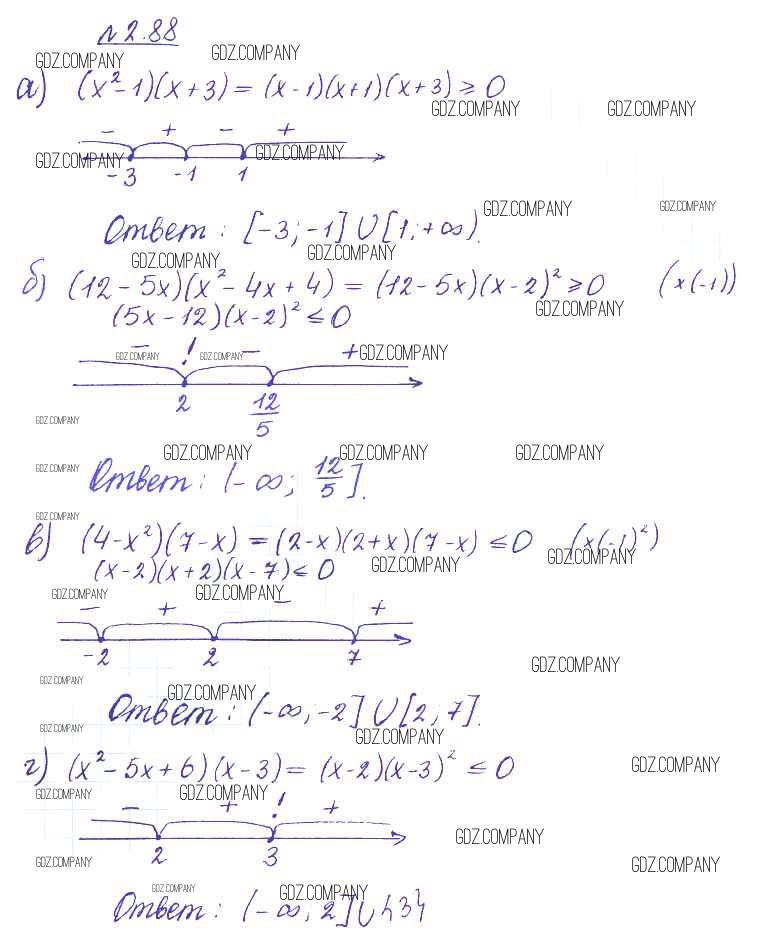 №2.88
GDZ.COMPANY GDZ.COMPANY
а) (x²-1)(x+3) = (x-1)(x+1)(x+3) ≥ 0
GDZ.COMPANY GDZ.COMPANY
- + - +
GDZ.COMPANY GDZ.COMPANY
-3 -1 1
GDZ.COMPANY GDZ.COMPANY
Ответ: [-3; -1] ∪ [1; +∞).
GDZ.COMPANY GDZ.COMPANY
б) (12-5x)(x²-4x+4) = (12-5x)(x-2)² ≥ 0 (x(-1))
GDZ.COMPANY
(5x-12)(x-2)² ≤ 0
- ! - +
GDZ.COMPANY GDZ.COMPANY GDZ.COMPANY
2 12/5
GDZ.COMPANY
GDZ.COMPANY GDZ.COMPANY GDZ.COMPANY
GDZ.COMPANY
Ответ: (-∞; 12/5].
GDZ.COMPANY
в) (4-x²)(7-x) = (2-x)(2+x)(7-x) ≤ 0 (x(-1)²)
GDZ.COMPANY GDZ.COMPANY
(x-2)(x+2)(x-7) ≤ 0
GDZ.COMPANY GDZ.COMPANY
- + - +
-2 2 7
GDZ.COMPANY
GDZ.COMPANY GDZ.COMPANY
Ответ: (-∞; -2] ∪ [2; 7].
GDZ.COMPANY GDZ.COMPANY
г) (x²-5x+6)(x-3) = (x-2)(x-3)² ≤ 0
GDZ.COMPANY
GDZ.COMPANY GDZ.COMPANY
- + ! +
GDZ.COMPANY
2 3
GDZ.COMPANY GDZ.COMPANY
GDZ.COMPANY GDZ.COMPANY
Ответ: (-∞; 2] ∪ {3}